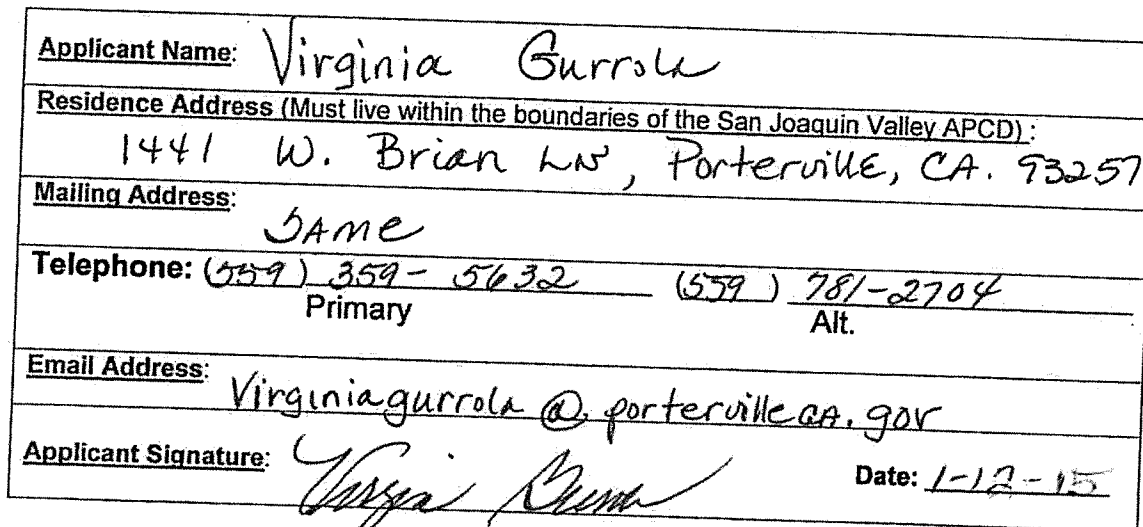 Applicant Name: Virginia Gurrola
Residence Address (Must live within the boundaries of the San Joaquin Valley APCD) :
1441 W. Brian LN, Porterville, CA. 93257
Mailing Address:
SAME
Telephone: (559) 359-5632 (559) 781-2704
Primary Alt.
Email Address:
Virginiagurrola@portervilleCA.gov
Applicant Signature: Virginia Gurrola Date: 1-12-15